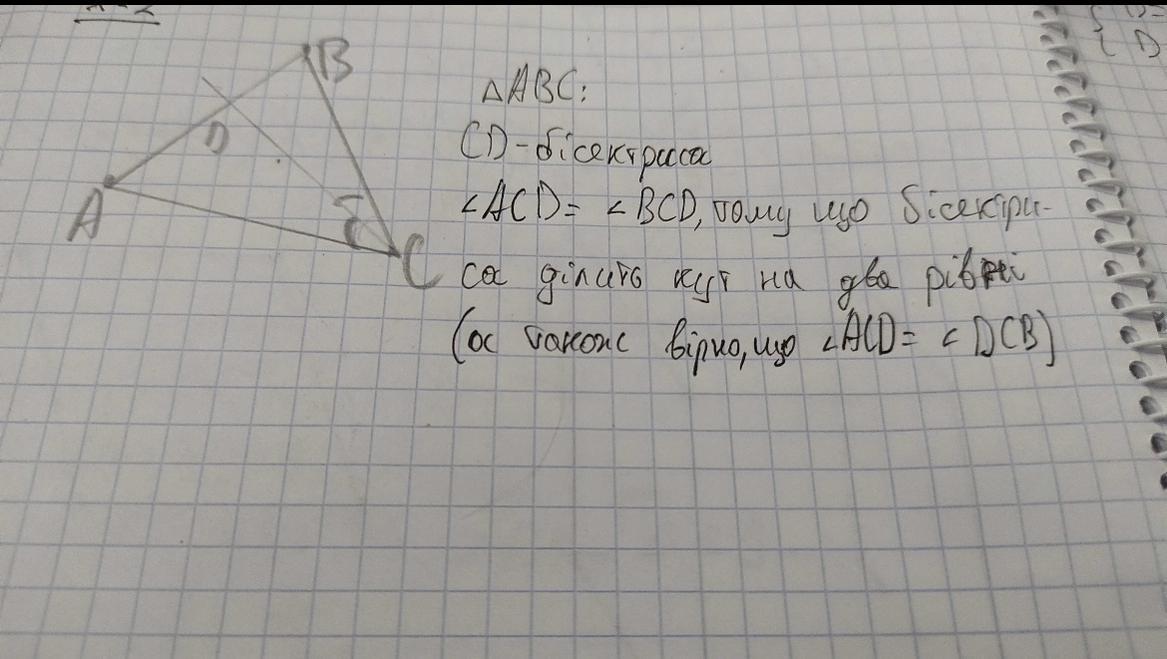 B
△ABC:
D
CD - бісектриса
A
∠ACD = ∠BCD, тому що бісектри-
C
са ділить кут на два рівні
(а також вірно, що ∠ACD = ∠DCB)